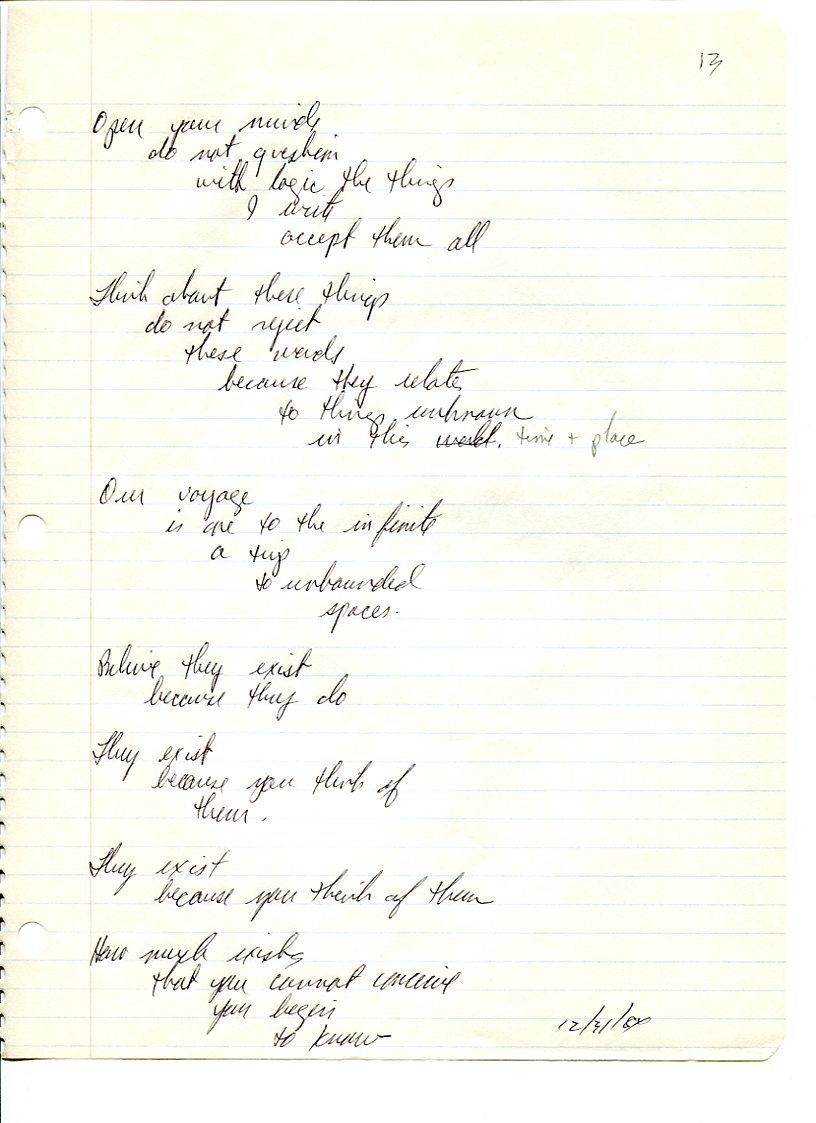 13
Open your minds
do not question
with logic the things
I write
accept them all
Think about these things
do not reject
these words
because they relate
to things unknown
in this world. time + place
Our voyage
is one to the infinite
a trip
to unbounded
spaces.
Believe they exist
because they do
They exist
because you think of
them.
They exist
because you think of them
How much exists
that you cannot conceive
you begin
to know
12/31/84